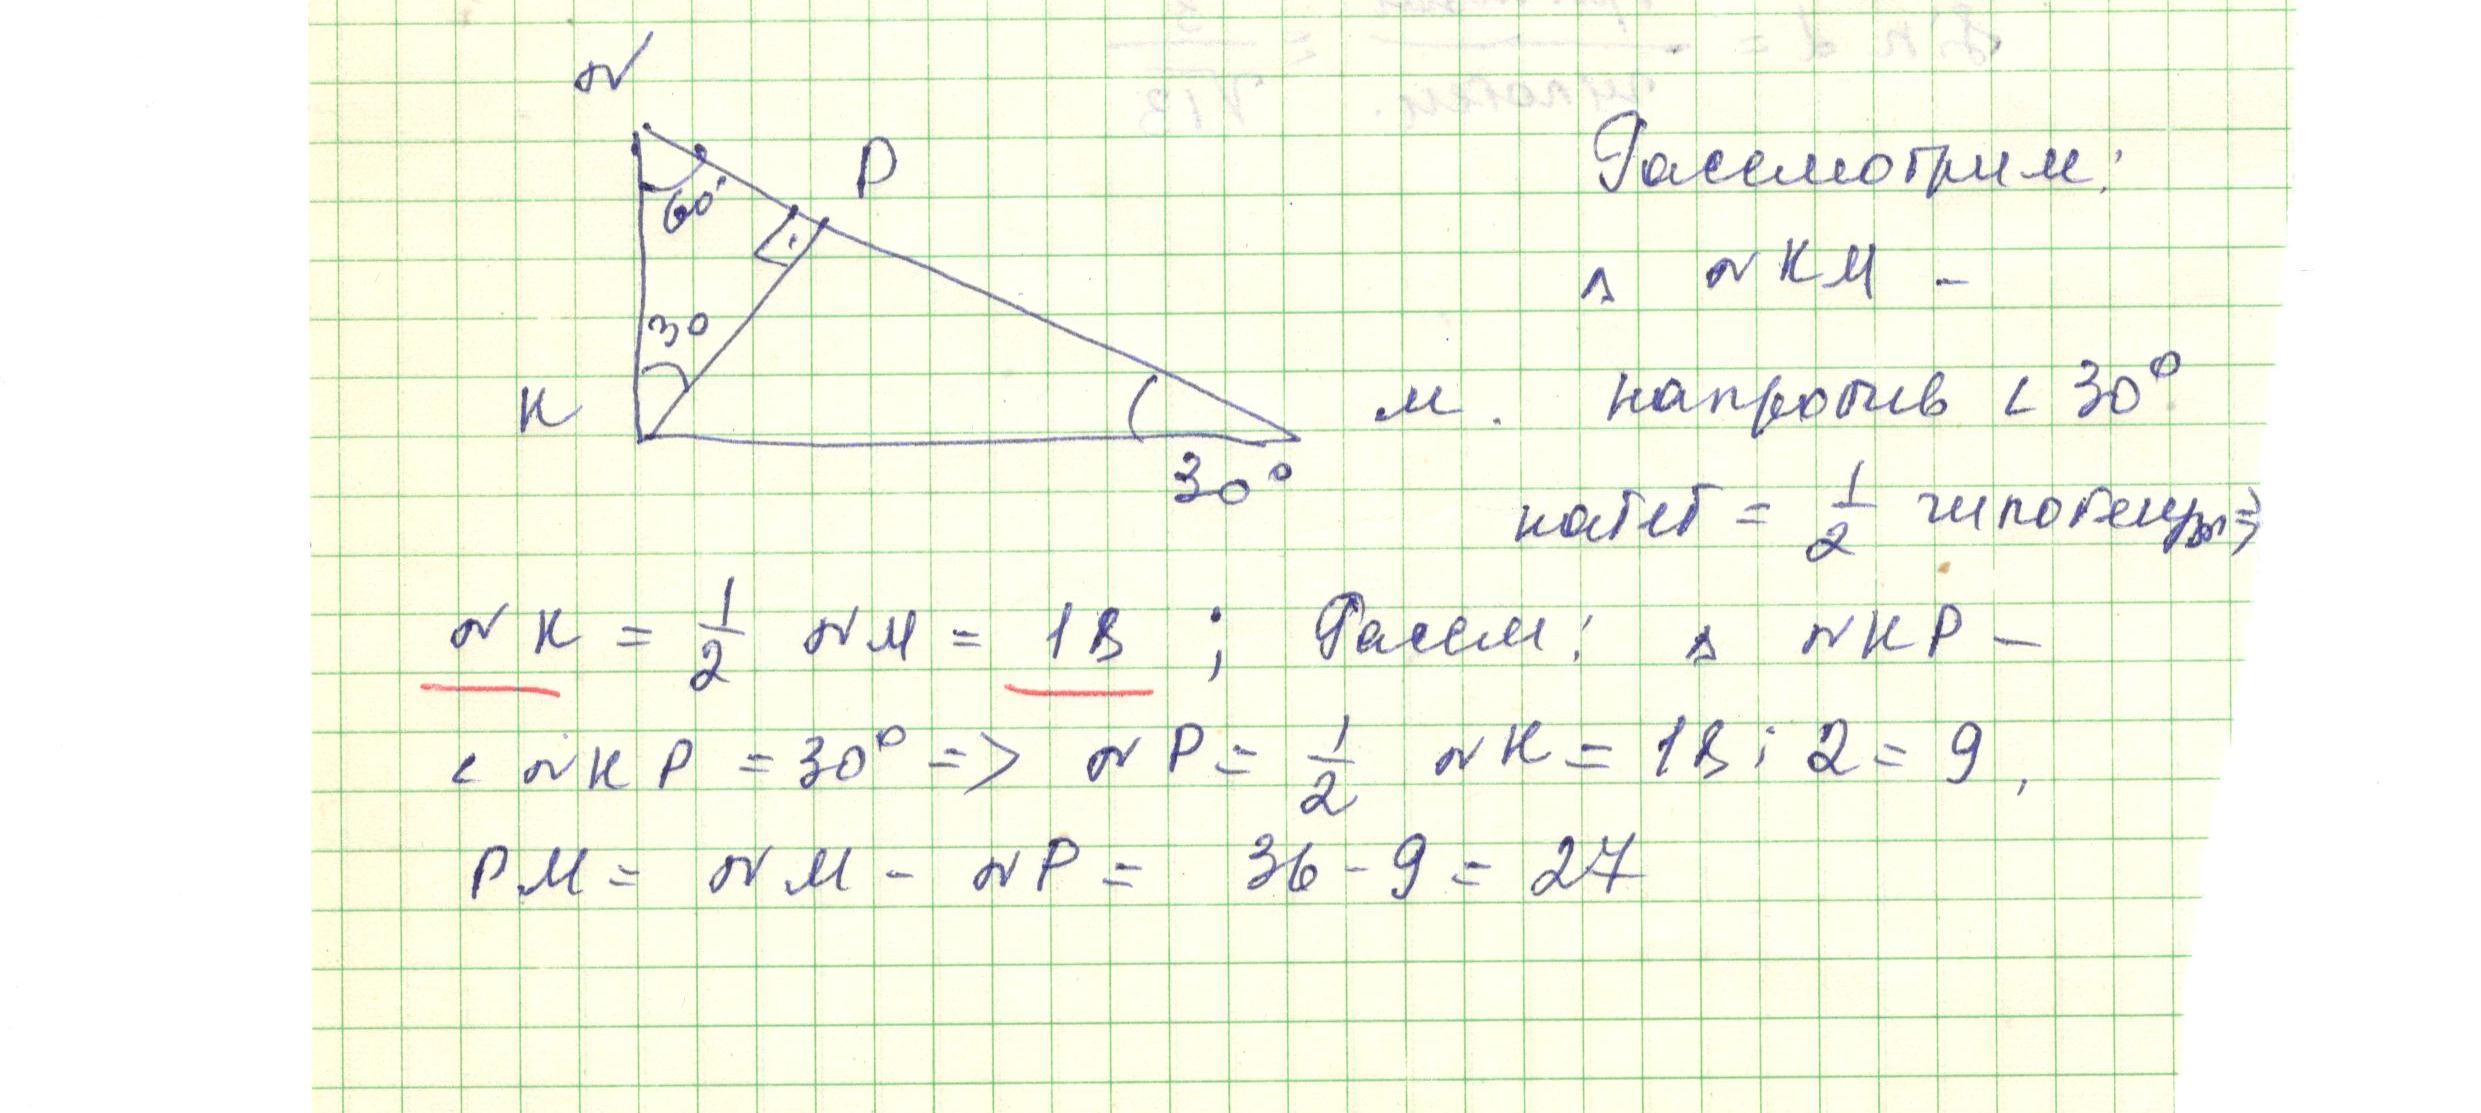 N
P
60°
30
K
M.
30°
Рассмотрим:
Δ NKM -
напротив < 30°
катет = 1/2 гипотенузы =>
NK = 1/2 NM = 18 ; Рассм: Δ NKP -
< NKP = 30° => NP = 1/2 NK = 18 : 2 = 9,
PM = NM - NP = 36 - 9 = 27